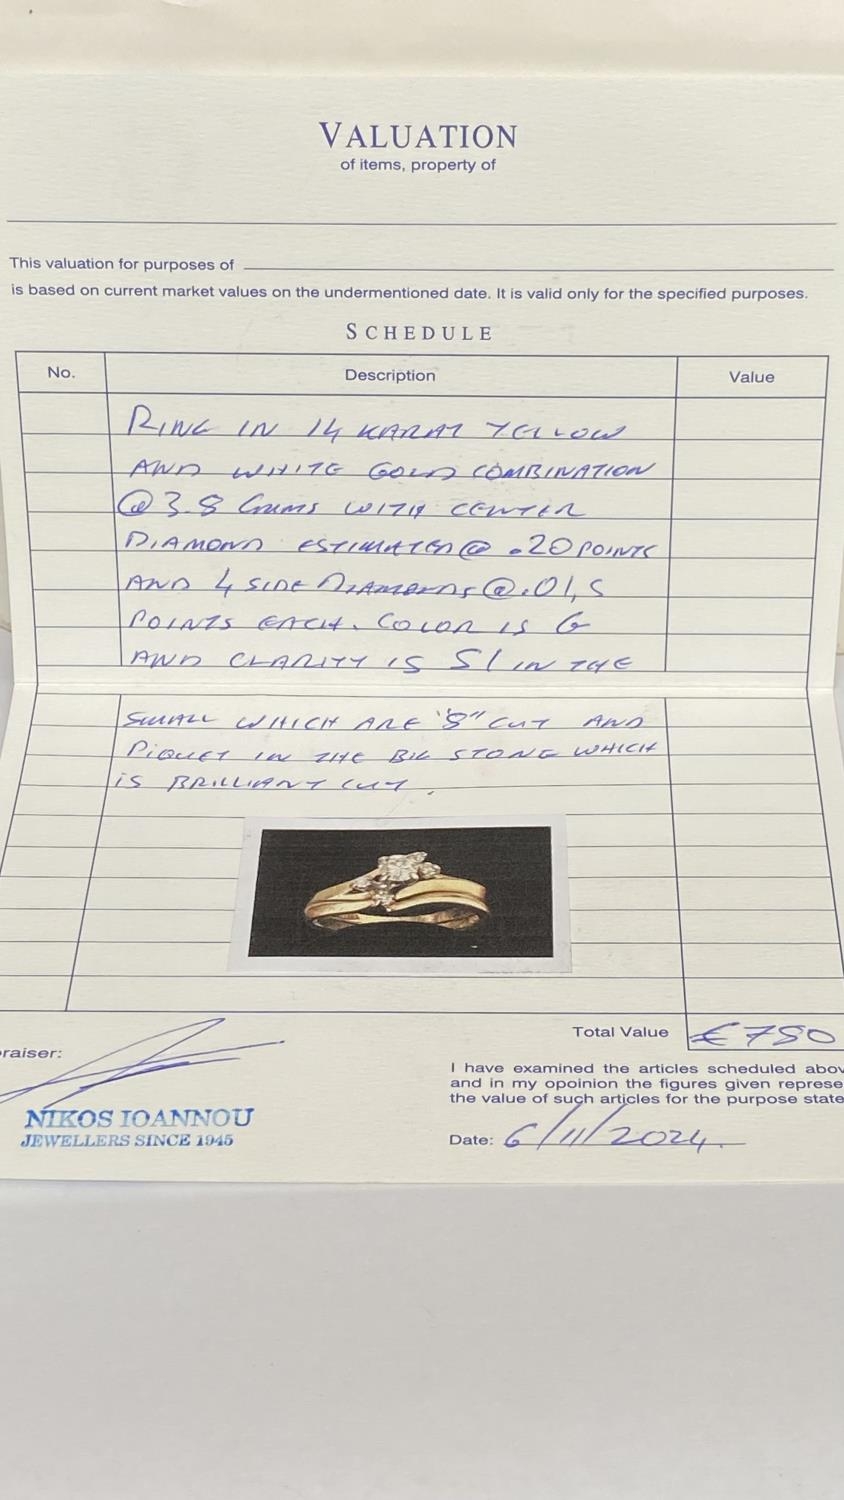 VALUATION
of items, property of
This valuation for purposes of
is based on current market values on the undermentioned date. It is valid only for the specified purposes.
SCHEDULE
No. Description Value
RING IN 14 KARAT YELLOW
AND WHITE GOLD COMBINATION
@ 3.8 GRAMS WITH CENTER
DIAMOND ESTIMATED @ .20 POINTS
AND 4 SIDE DIAMONDS @ .01,5
POINTS EACH. COLOR IS G
AND CLARITY IS SI IN THE
SMALL WHICH ARE "8" CUT AND
PIQUET IN THE BIG STONE WHICH
IS BRILLIANT CUT.
Total Value €780
raiser:
I have examined the articles scheduled abov
and in my opoinion the figures given represe
the value of such articles for the purpose state
NIKOS IOANNOU
JEWELLERS SINCE 1945
Date: 6/11/2024